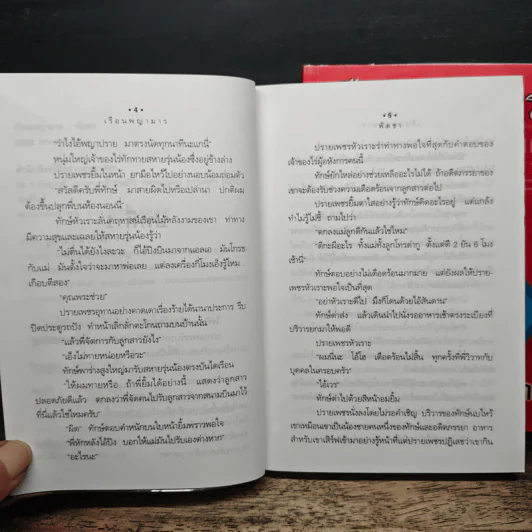 • 4 •
เรือนพญามาร
"ว่าไงไอ้พญาปราย มาตรงนัดทุกนาทีนะแกนี่"
หนุ่มใหญ่เจ้าของไร่ทักทายสหายรุ่นน้องซึ่งอยู่ข้างล่าง
ปรายเพชรยิ้มในหน้า ยกมือไหว้ไปอย่างนอบน้อมถ่อมตัว
"สวัสดีครับพี่ทักษ์ มาสายผิดไปหรือเปล่านา ปกติผม
ต้องขึ้นปลุกพี่บนห้องนอนนี่"
ทักษ์หัวเราะลั่นคฤหาสน์เรือนไม้หลังงามของเขา ท่าทาง
มีความสุขและเฉลยให้สหายรุ่นน้องรู้ว่า
"ไม่ตื่นได้ยังไงละวะ ก็ไอ้ปิงบินมาจากแอลเอ มันโกรธ
กับแม่ มันตั้งใจว่าจะมาหาพ่อเลย แต่ลงเครื่องกี่โมงเอ็งรู้ไหม
เกือบตีสอง"
"คุณพระช่วย"
ปรายเพชรอุทานอย่างคาดเดาเรื่องร้ายได้นานาประการ รีบ
ปิดประตูรถปัง ทำหน้าเลิ่กลั่กตะโกนถามบนบ้านนั้น
"แล้วพี่จัดการกับลูกสาวยังไง"
"เอ็งไม่ทายหน่อยหรือวะ"
ทักษ์พาร่างสูงใหญ่มารับสหายรุ่นน้องตรงบันไดเรือน
"ให้ผมทายหรือ...ถ้าพี่ยิ้มได้อย่างนี้ แสดงว่าลูกสาว
ปลอดภัยดีแล้ว ตกลงว่าพี่จัดคนไปรับลูกสาวจากสนามบินมาไว้
ที่นี่แล้วใช่ไหมครับ"
"ผิด" ทักษ์ตอบคำหนักบนใบหน้ายิ้มพราวพอใจ
"พี่หักหลังไอ้ปิง บอกให้แม่มันไปรับเองต่างหาก"
"อะไรนะ"
• 5 •
พัดชา
ปรายเพชรหัวเราะร่าท่าทางพอใจที่สุดกับคำตอบของ
เจ้าของไร่ผู้อหังการคนนี้
ทักษ์ยักไหล่อย่างช่วยเหลืออะไรไม่ได้ ถ้าอดีตภรรยาของ
เขาจะต้องรับช่วงความเดือดร้อนจากลูกสาวต่อไป
ปรายเพชรยิ้มตาใสอย่างรู้ว่าทักษ์คิดอะไรอยู่ แต่แกล้ง
ทำไม่รู้ไม่ชี้ ถามไปว่า
"ตกลงแม่ลูกดีกันแล้วใช่ไหม"
"ดีกะผีอะไร ทั้งแม่ทั้งลูกโทรด่ากู ตั้งแต่ตี 2 ยัน 6 โมง
เช้านี่"
ทักษ์ตอบอย่างไม่เดือดร้อนมากมาย แต่ยังผลให้ปราย-
เพชรหัวเราะพอใจเป็นที่สุด
"อย่าหัวเราะดีไป มึงก็โดนด้วยไอ้สันดาน"
ทักษ์ด่าส่ง แล้วเดินนำไปนั่งรออาหารเช้าตรงระเบียงที่
บริวารยกมาให้พอดี
ปรายเพชรหัวเราะ
"ผมนี่นะ โอ้โฮ เดือดร้อนไม่สิ้น ทุกครั้งที่พี่วิวาทกับ
บุคคลในครอบครัว"
"ไอ้เวร"
ทักษ์ด่าไปด้วยสีหน้าอมยิ้ม
ปรายเพชรนั่งลงโดยไม่รอคำเชิญ บริวารของทักษ์นบไหว้
เขาเหมือนเขาเป็นน้องชายคนหนึ่งของทักษ์และอดีตภรรยา อาหาร
สำหรับเขาเสิร์ฟเข้ามาอย่างรู้หน้าที่แต่ปรายเพชรปฏิเสธว่าเขากิน